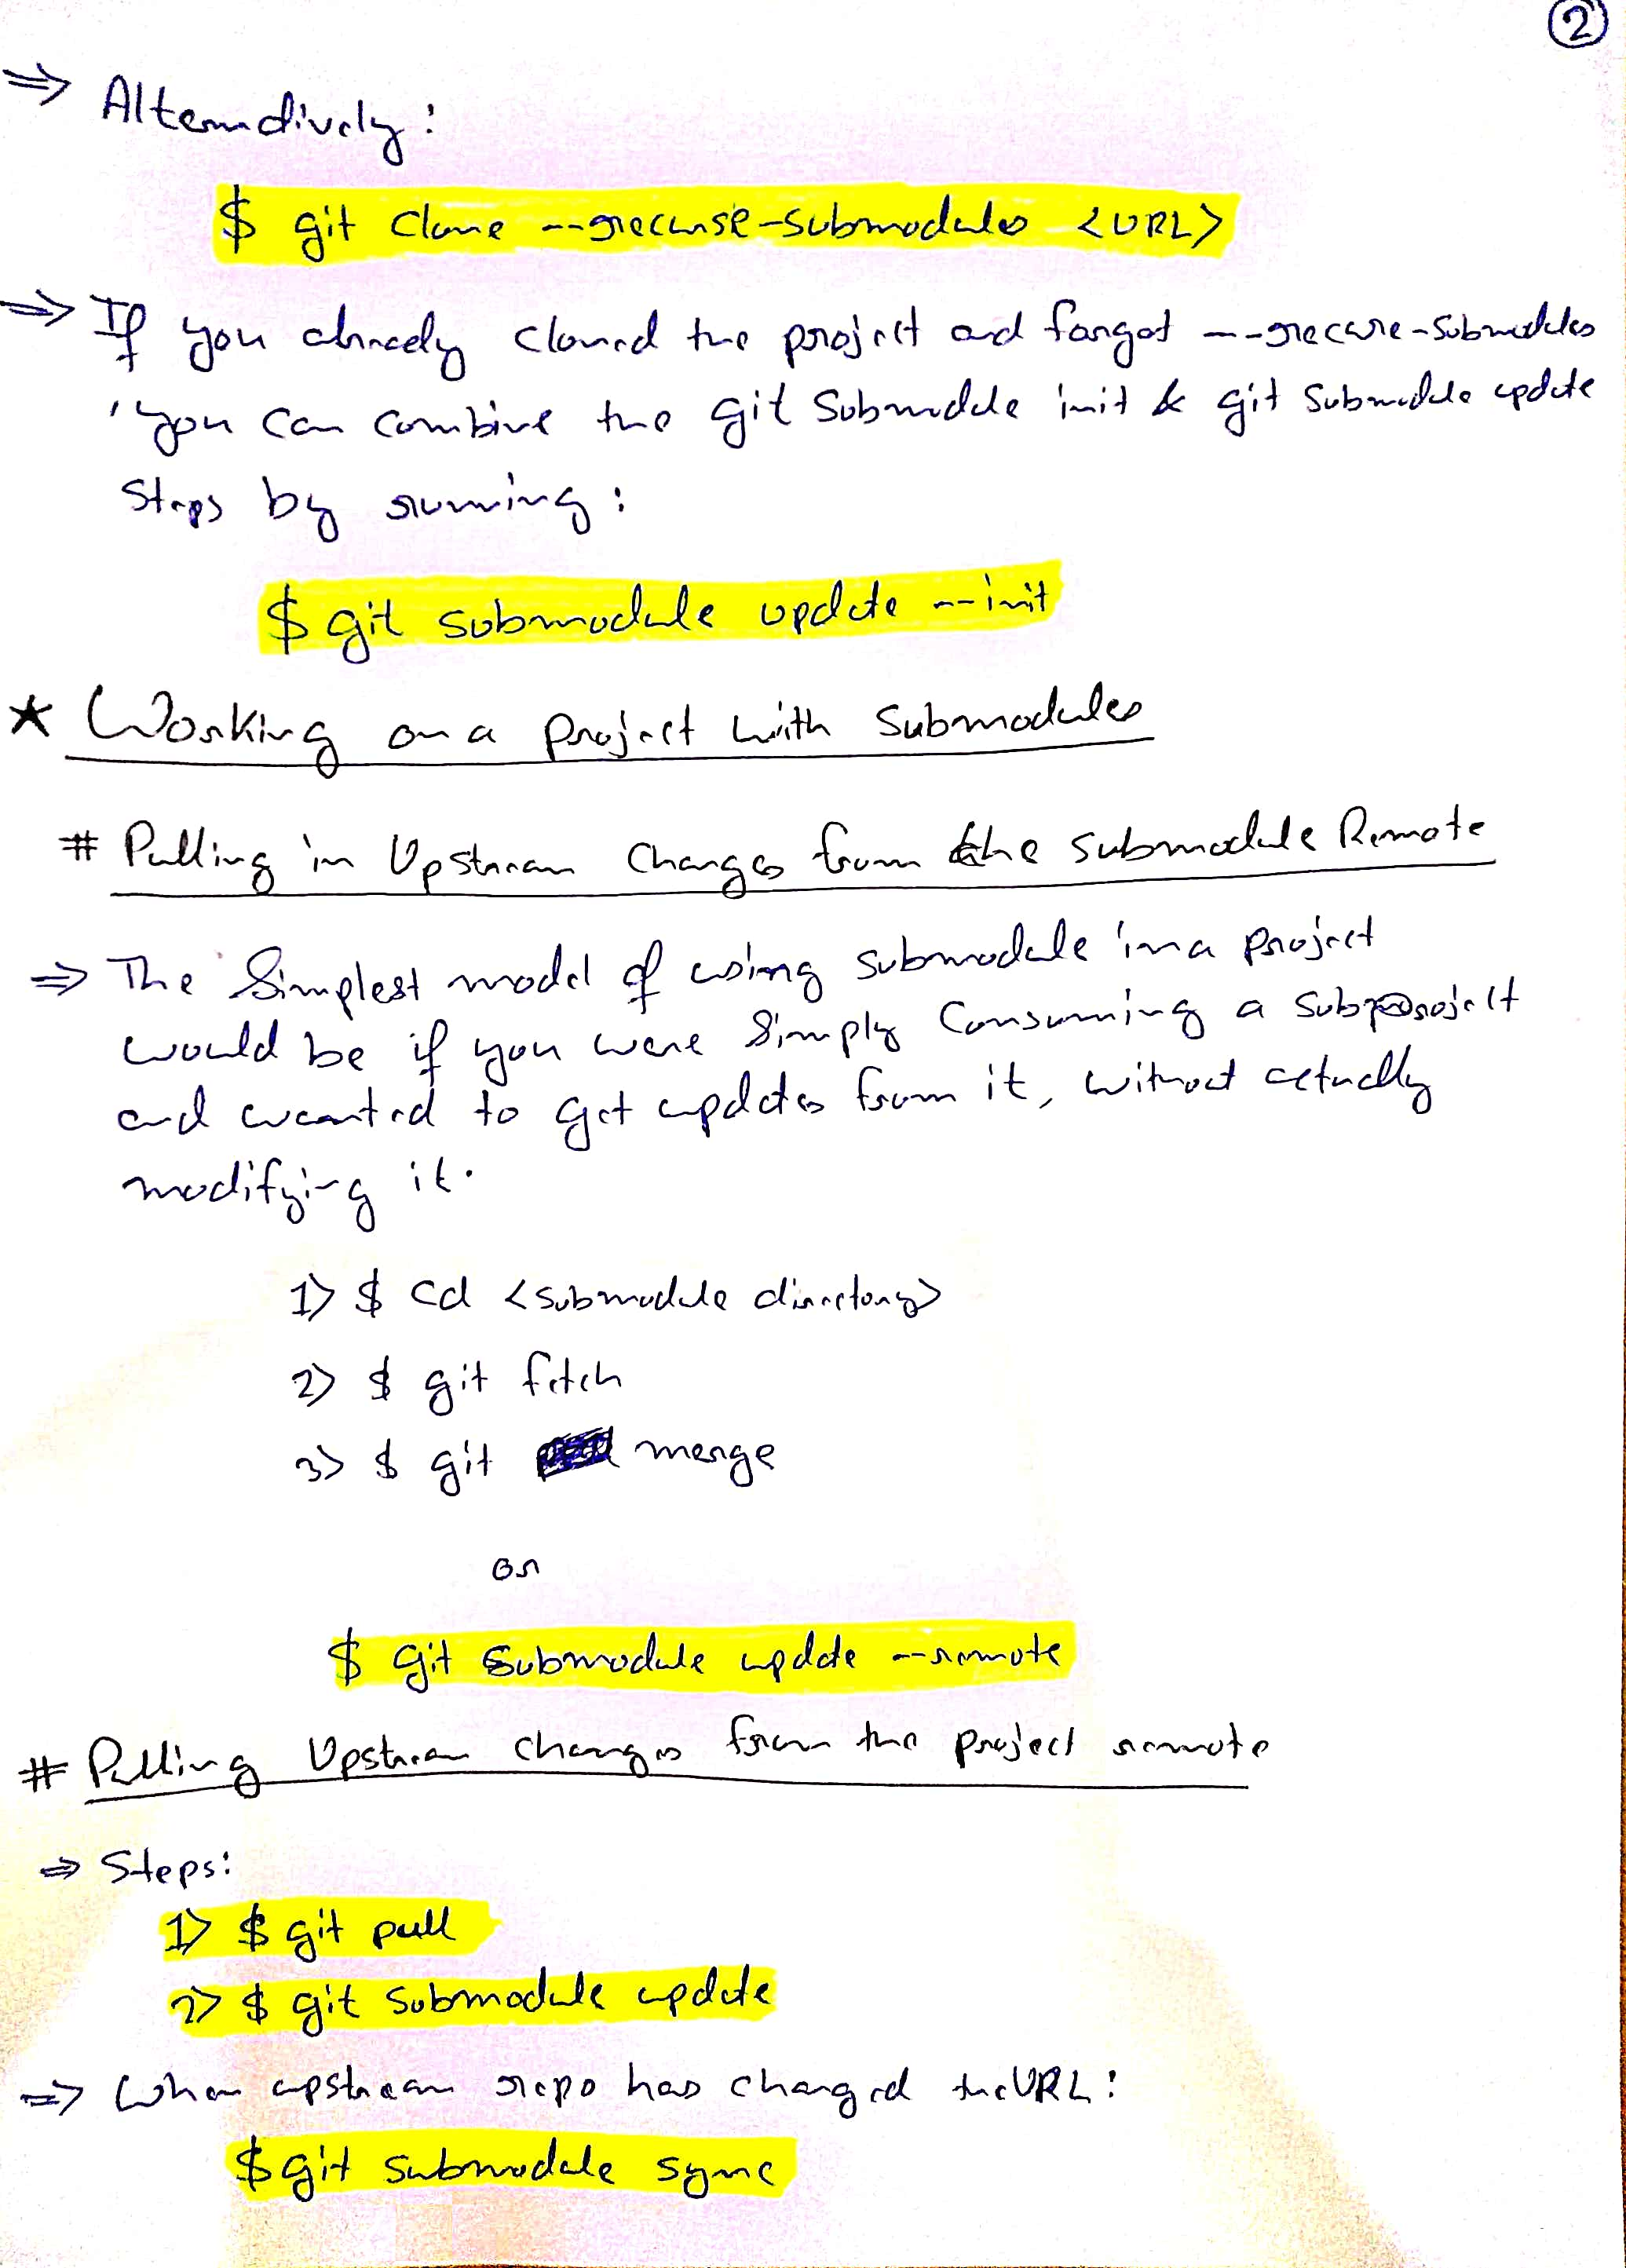 ②
⇒ Alternatively:
$ git clone --recurse-submodules <URL>
⇒ If you already cloned the project and forgot --recurse-submodules
, you can combine the git submodule init & git submodule update
steps by running:
$ git submodule update --init
★ Working on a Project with Submodules
# Pulling in Upstream Changes from the Submodule Remote
⇒ The Simplest model of using submodule in a project
would be if you were Simply Consuming a subproject
and wanted to get updates from it, without actually
modifying it.
1) $ cd <submodule directory>
2) $ git fetch
3) $ git merge
or
$ git submodule update --remote
# Pulling Upstream changes from the project remote
⇒ Steps:
1) $ git pull
2) $ git submodule update
⇒ When upstream repo has changed the URL:
$ git submodule sync